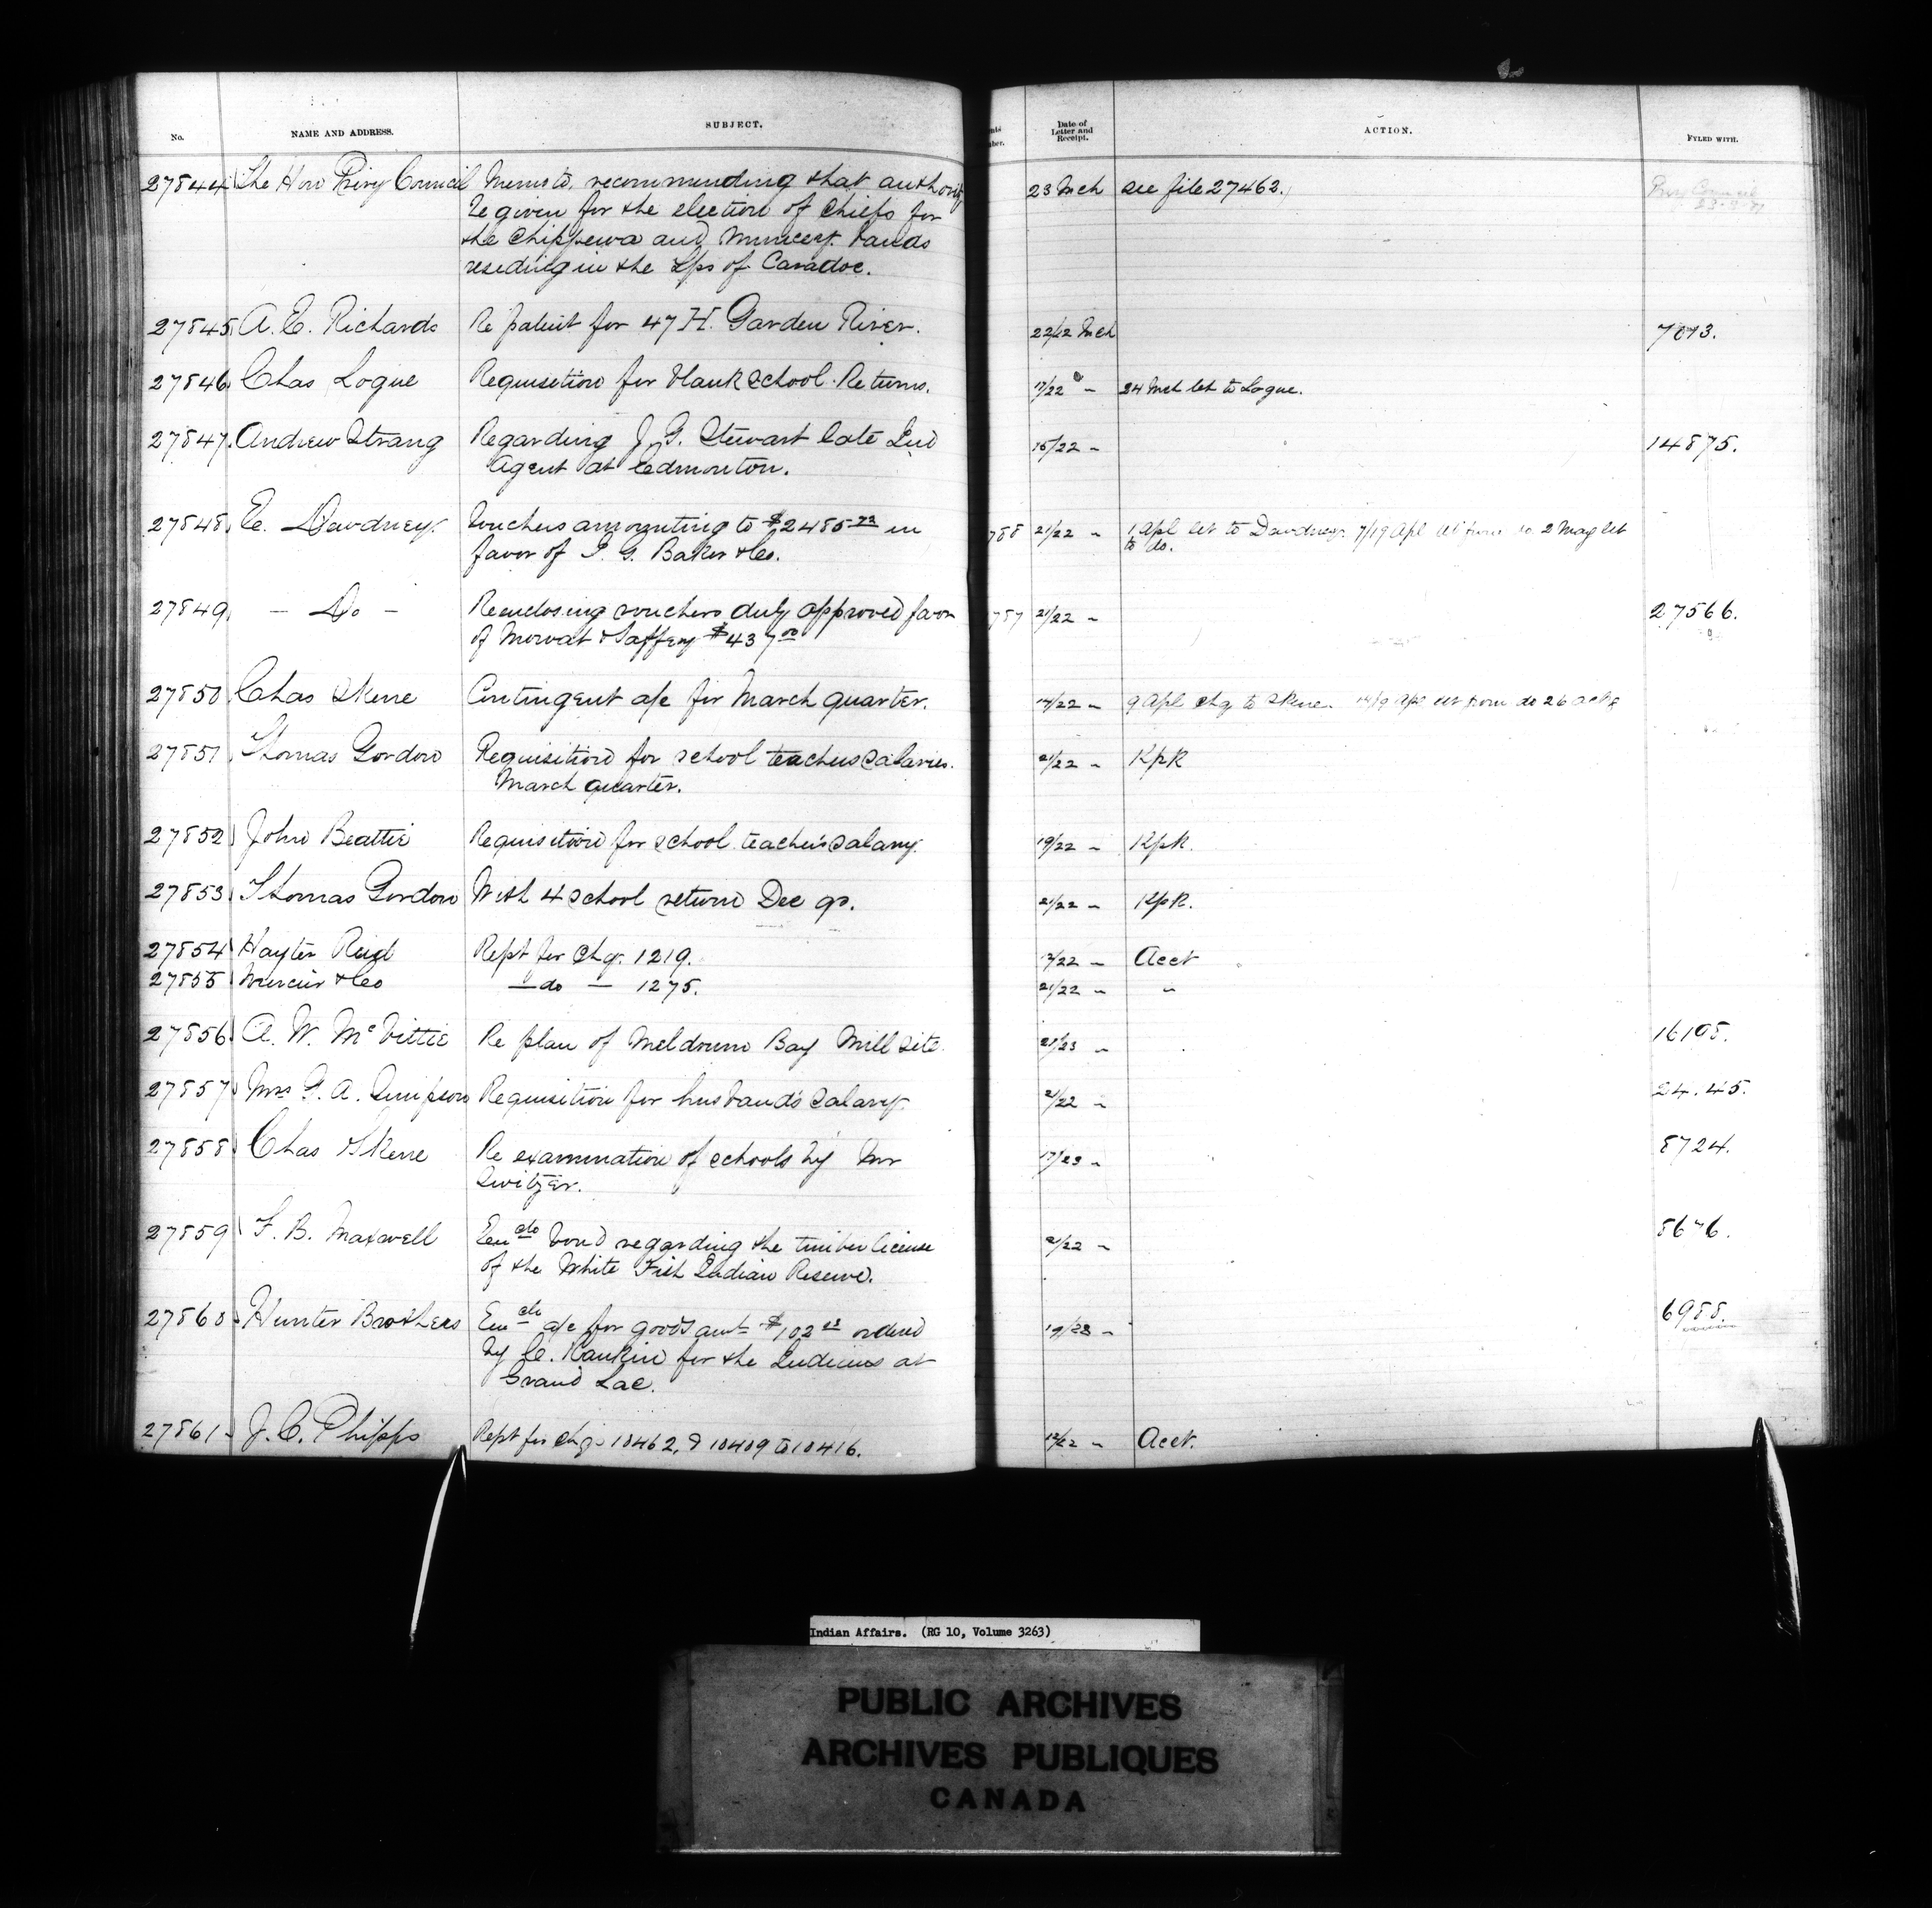 No. NAME AND ADDRESS. SUBJECT. Date of Letter and Receipt. ACTION. FYLED WITH.
27844 The Hon Privy Council Memo to, recommending that authority 23 Mch see file 27462. Privy Council
be given for the election of Chiefs for
the Chippewa and Muncey bands
residing in the Tps of Caradoc.
27845 A. E. Richards Re patent for 47 H. Garden River. 22/22 Mch 7013.
27846 Chas Logue Requisition for blank School Returns. 17/22 " 24 Mch let to Logue.
27847. Andrew Strang Regarding J. G. Stewart late Ind 15/22 " 14875.
Agent at Edmonton.
27848 E. Dewdney. Vouchers amounting to $2485 73 in 788 21/22 " 1 Apl let to Dewdney. 7/19 Apl let from do. 2 May let
favor of I. G. Baker & Co. to do.
27849 — Do — Reenclosing vouchers duly approved favor 787 21/22 " 27566.
of Mowat & Saffery $437 00
27850 Chas Skene Contingent a/c for March quarter. 17/22 " 9 Apl chq to Skene. 14/19 Apl let from do 26
27851 Thomas Gordon Requisition for school teachers salaries. 21/22 " KpR
March quarter.
27852 John Beattie Requisition for school teacher's salary. 19/22 " KpR.
27853 Thomas Gordon With 4 school return Dec qr. 21/22 " KpR.
27854 Hayter Reed Rept for chq. 1219. 12/22 " Acct
27855 Mercier & Co — do — 1275. 21/22 " "
27856 A. W. McVittie Re plan of Meldrum Bay Mill site. 21/23 " 16105.
27857 Mrs G. A. Simpson Requisition for husband's salary. 21/22 " 24.45.
27858 Chas Skene Re examination of schools by Mr 17/23 " 8724.
Switzer.
27859 F. B. Maxwell Encdo bond regarding the timber license 21/22 " 8676.
of the White Fish Indian Reserve.
27860 Hunter Brothers Encdo a/c for goods amt $102 ordered 19/23 " 6988.
by C. Rankin for the Indians at
Grand Lac.
27861 J. C. Phipps Rept for chqs 10462, & 10409 to 10416. 12/22 " Acct.
Indian Affairs. (RG 10, Volume 3263)
PUBLIC ARCHIVES
ARCHIVES PUBLIQUES
CANADA